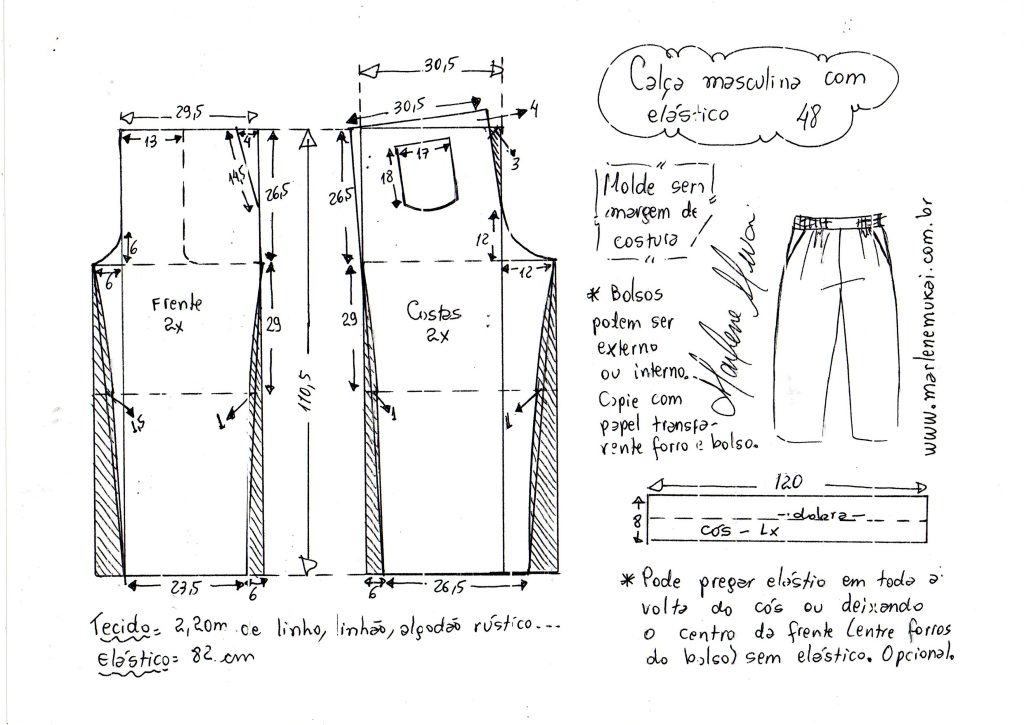 Calça masculina com
elástico 48
30,5
30,5
4
29,5
13
4
14,5
26,5
26,5
17
18
3
6
6
12
12
Frente
2x
Costas
2x
29
29
110,5
1,5
1
1
1
23,5
6
6
26,5
Molde sem
margem de
costura
* Bolsos
podem ser
externo
ou interno.
Copie com
papel transpa-
rente forro e bolso.
Marlene Mukai
www.marlenemukai.com.br
120
8
dobra
cós - 1x
Tecido= 2,20m de linho, linhão, algodão rústico...
Elástico= 82 cm
* Pode pregar elástio em toda a
volta do cós ou deixando
o centro da frente (entre forros
do bolso) sem elástico. Opcional.